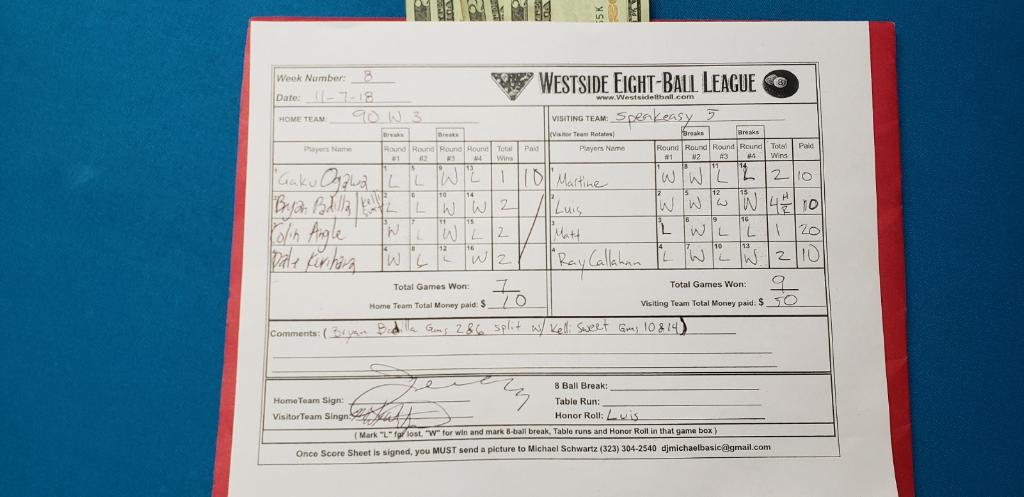 Week Number: 8
WESTSIDE EIGHT-BALL LEAGUE
www.Westside8ball.com
Date: 11-7-18
HOME TEAM: 90 W 3
VISITING TEAM: Speakeasy 5
(Visitor Team Rotates)
Breaks Breaks Breaks Breaks
Players Name Round #1 Round #2 Round #3 Round #4 Total Wins Paid
Players Name Round #1 Round #2 Round #3 Round #4 Total Wins Paid
1 Gaku Ogawa 1 L 5 L 9 W 13 L 1 10
1 Martine 1 W 8 W 11 L 14 L 2 10
2 Bryan Badilla / Kelli Sweet 2 L 6 L 10 W 14 W 2
2 Luis 2 W 5 W 12 W 15 W 4 HR 10
3 Colin Angle 3 W 7 L 11 W 15 L 2
3 Matt 3 L 6 W 9 L 16 L 1 20
4 Dale Kurihara 4 W 8 L 12 L 16 W 2
4 Ray Callahan 4 L 7 W 10 L 13 W 2 10
Total Games Won: 7
Total Games Won: 9
Home Team Total Money paid: $ 10
Visiting Team Total Money paid: $ 50
Comments: (Bryan Badilla Gms 2&6 split w/ Kelli Sweet Gms 10&14)
8 Ball Break:
HomeTeam Sign:
Table Run:
VisitorTeam Singn:
Honor Roll: Luis
( Mark "L" for lost, "W" for win and mark 8-ball break, Table runs and Honor Roll in that game box )
Once Score Sheet is signed, you MUST send a picture to Michael Schwartz (323) 304-2540 djmichaelbasic@gmail.com